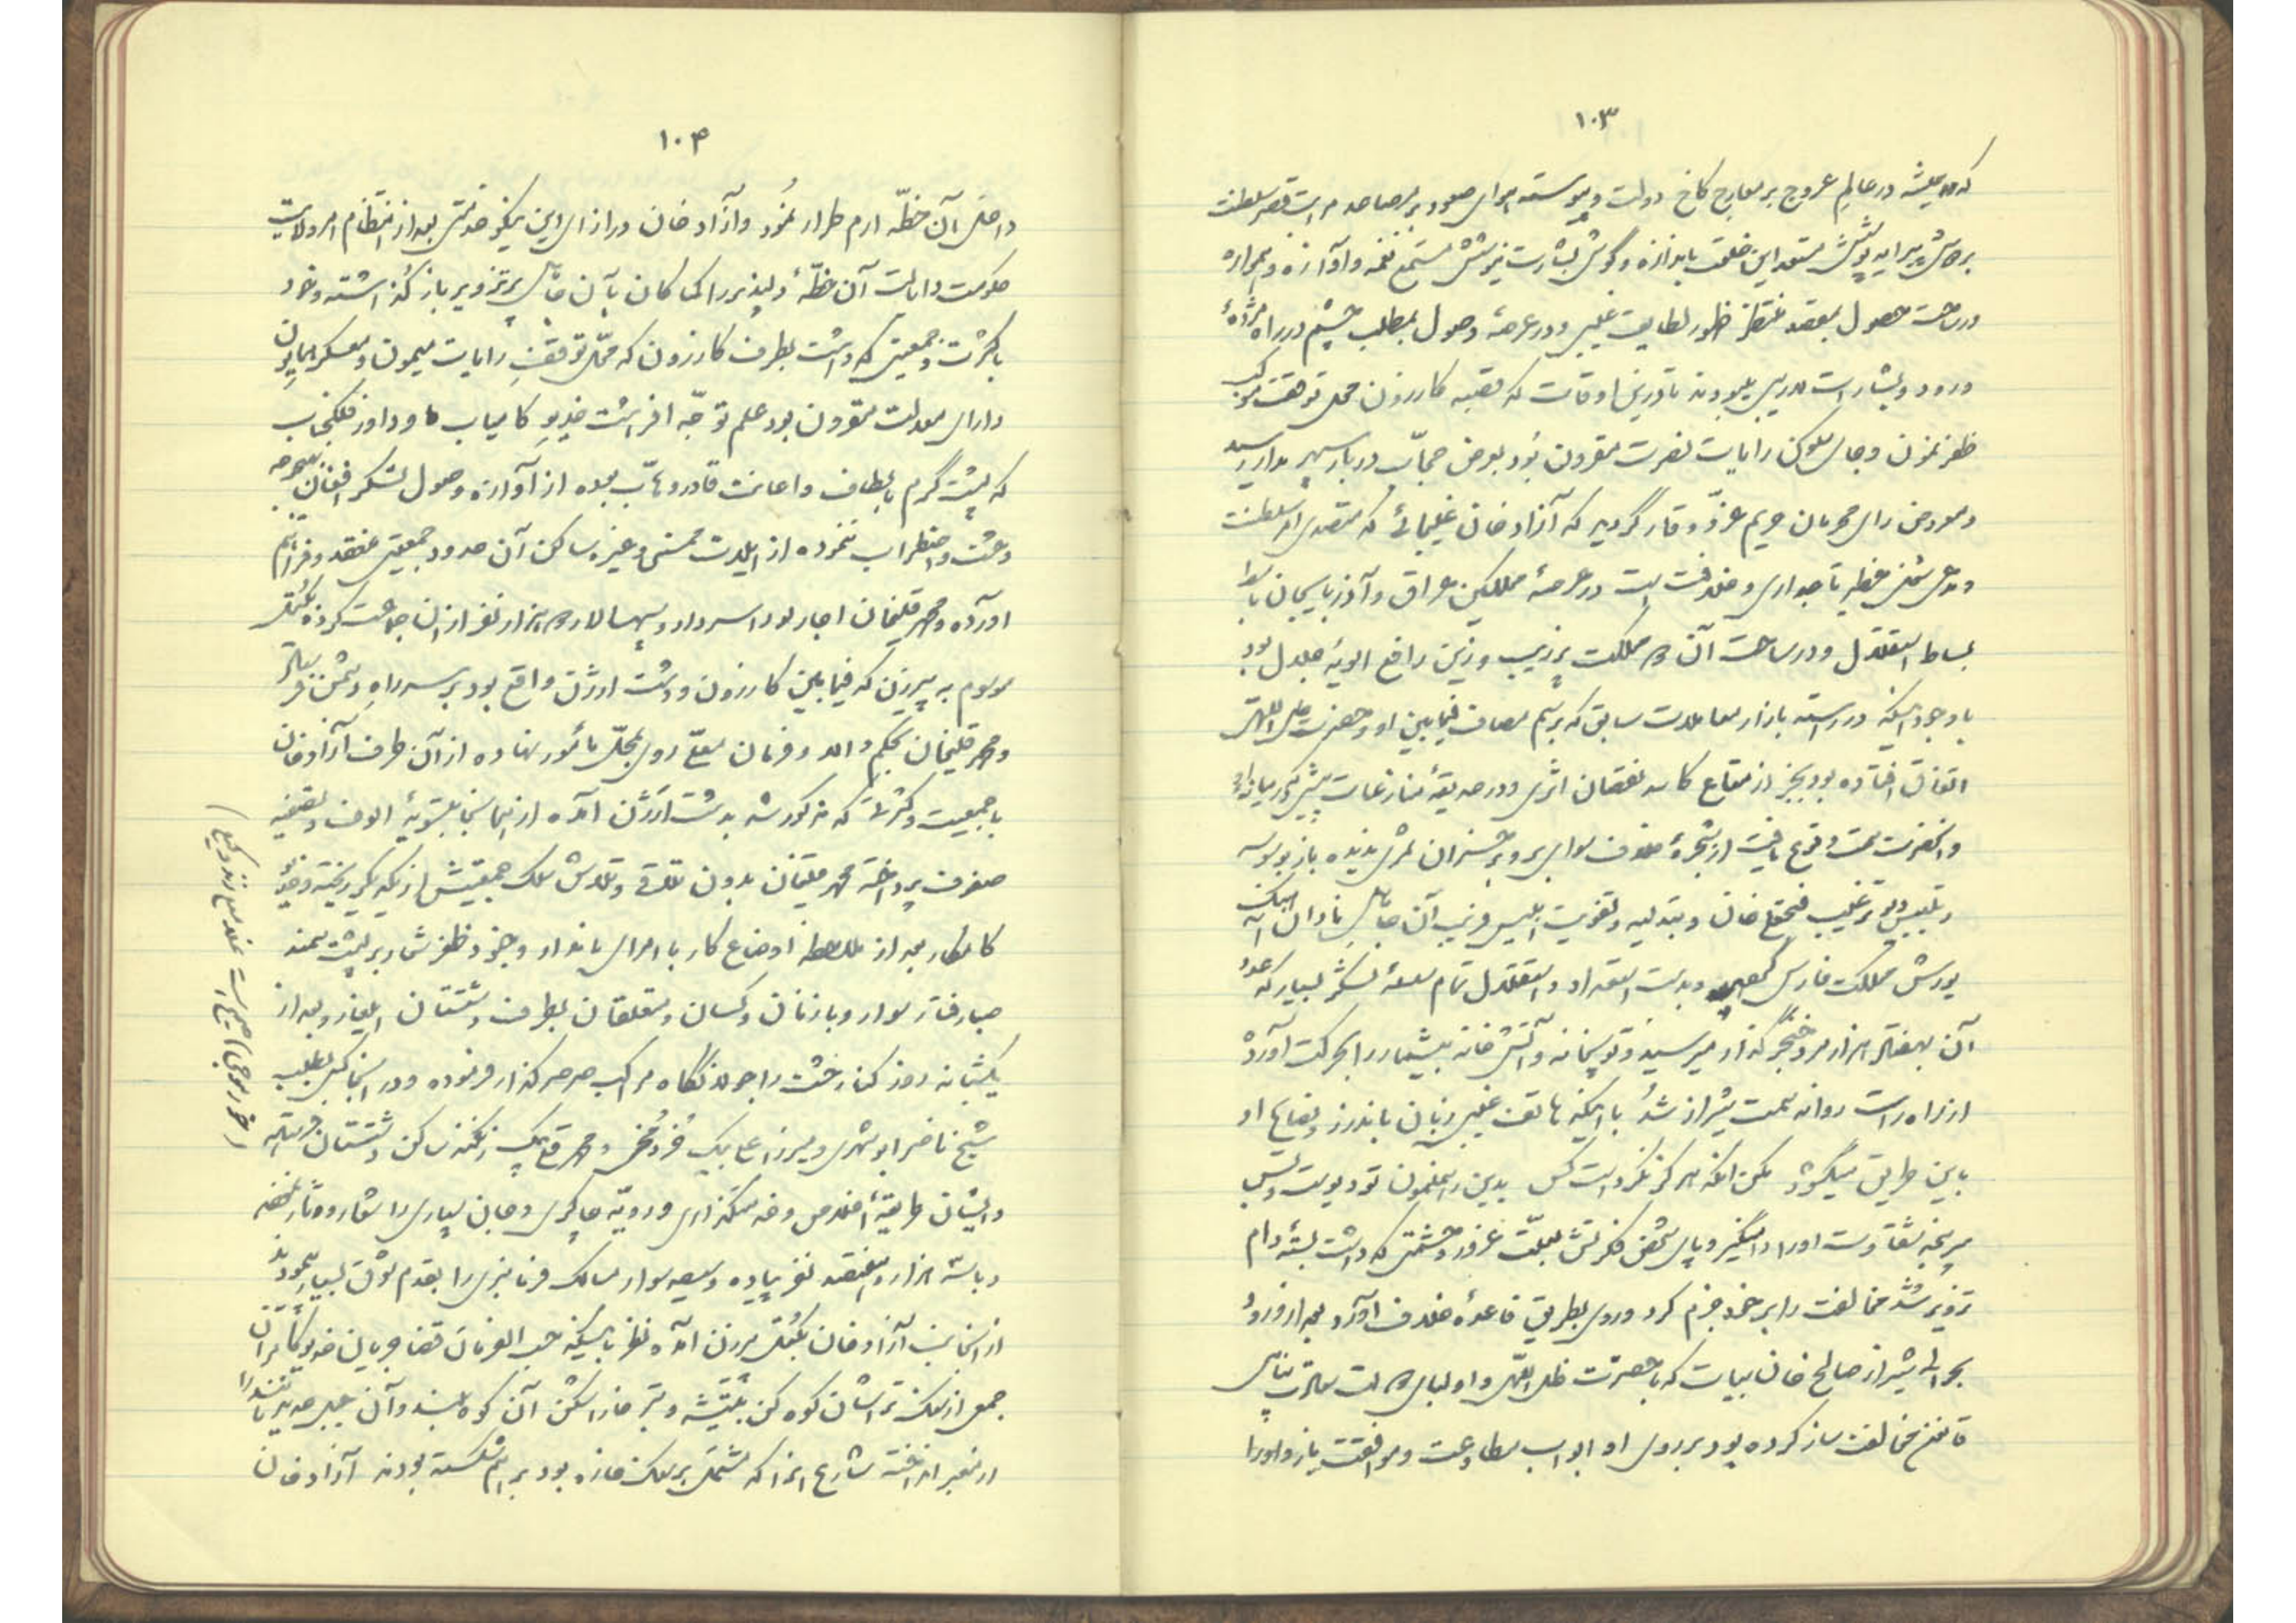 ۱۰۳
که همیشه در عالم عروج بر معارج کاخ دولت و پیوسته هوای صعود بر مصاعد مراتب قصر سلطنت
پیرایه پوشش مستعد این خلعت باندازه و گوش بشارت نیوشش مستمع نغمه و آوازه و همواره
در ساحت حصول بمقصد منتظر ظهور لطایف غیبی و در عرصهٔ وصول بمطلب چشم در راه مژدهٔ
ورود و بشارات لاریبی میبودند تا درین اوقات که قصبه کازرون محل توقف موکب
ظفرنمون و جای سکون رایات نصرت مقرون بود بعرض حجاب دربار سپهر مدار رسید
و معروض رای محرمان حریم عزّ و وقار گردید که آزاد خان غلیجائی که متصدی امر سلطنت
و مدعی شغل خطیر تاجداری و خلافت است در عرصهٔ مملکتین عراق و آذربایجان باسط
بساط استقلال و در ساحت آن دو مملکت پر زیب و زین رافع الویهٔ جلال بود
با وجود اینکه در رسته بازار معاملات سابق که برسم مصاف فیمابین او و حضرت ظل اللهی
اتفاق افتاده بود بجز از متاع کاسد نقصان اثری و در حدیقهٔ منازعات پیش که در میان او
و آنحضرت سمت وقوع یافت از شجرهٔ خلاف سوای برو بر خسران ثمری ندیده باز بوسوسه
و تلبیس و ترغیب فتحعلی خان و بتدلیه و تقویت ابلیس فریب آن جاهل نادان آهنگ
یورش مملکت فارس و بدست استعداد و استقلال تمام لشکر بسیار که عدد
آن بهفتاد هزار مرد خنجرگذار میرسید و توپخانه و آتشخانه بیشمار را بحرکت آورده
از راه راست روانه سمت شیراز شد با اینکه هاتف غیبی زبان باندرز و نصایح او
باین طریق میگشود مکن آنکه هرگز نکرده است کس بدین رهنمون تو دیو است و بس
سرپنجه شقاوت او را دامنگیر و پای شخص فکرتش بعلّت غرور و حشمتی که داشت بستهٔ دام
تزویر شد مخالفت را بر خود جزم کرد و روی بطریق قاعدهٔ خلاف آورد بعد از ورود
بحوالی شیراز صالح خان بیات که با حضرت ظل اللهی و اولیای دولت
قانون مخالفت ساز کرده بود بر روی او ابواب مطاوعت و موافقت باز و او را
۱۰۴
داخل آن خطّه ارم طراز نمود و آزاد خان در ازای این نیکو خدمتی بعد از انتظام امر ولایت
حکومت و ایالت آن خطّهٔ دلپذیر را کما کان بآن جاهل پر تزویر باز گذاشته و خود
با کثرت و جمعیتی که داشت بطرف کازرون که محلّ توقف رایات میمون و معسکر همایون
دارای معدلت مقرون بود علم توجّه افراشت خدیو کامیاب و داور فلکجناب
که پشت گرم بالطاف و اعانت قادر وهّاب بوده از آوازه وصول لشکر افغان بهیچوجه
دهشت و اضطراب ننموده از ایلات ممسنی و غیره ساکن آن حدود جمعیتی منعقد و فراهم
آورده و محمد قلیخان افشار بود را سردار و سپهسالار دو هزار نفر از آن جماعت کرده بکتل
موسوم به پیرزن که فیمابین کازرون و دشت ارژن واقع بود بر سر راه دشمن فرستاد
و محمد قلیخان بحکم والا و فرمان معلّی روی بمحلّ مأمور نهاده از آن طرف آزاد خان
با جمعیت و کثرتی که مذکور شد بدشت ارژن آمده از اینجا بتسویهٔ الوف و تصفیه
صفوف پرداخته محمد قلیخان بدون تلاقی و تلاش سلک جمعیتش از یکدیگر ریخته و خدیو
کامکار بعد از ملاحظه اوضاع کار با امرای نامدار و جنود ظفر شعار بر پشت سمند
صبا رفتار سوار و با زنان و کسان و متعلقان بطرف دشتستان ایلغار و بعد از
یکشبانه روز کنار خشت را جولانگاه مراکب صرصر گذار فرموده و در آنجا کس بطلب
شیخ ناصر ابوشهری و میرزا علی بیک خورموجی و محمد قلی بیک زنگنه ساکن دشتستان فرستاده
و ایشان طریقهٔ اخلاص و خدمتگذاری و رویّه چاکری و جان سپاری را شعار و دثار ساخته
و با سه هزار و هفتصد نفر پیاده و سیصد سوار مسالک فرمانبری را بقدم شوق بسیار پیمودند
از اینجانب آزاد خان بکتل پیرزن آمده نظر باینکه حسب الفرمان قضا جریان خدیو کامران
جمعی از سنگ تراشان کوه کن بتیشه و تبر خارا شکن آن کوه بلند و آن جبل مانند را
از معبر انداخته شارع آنرا که مشتمل بر سنگ خاره بود بر هم شکسته بودند آزاد خان